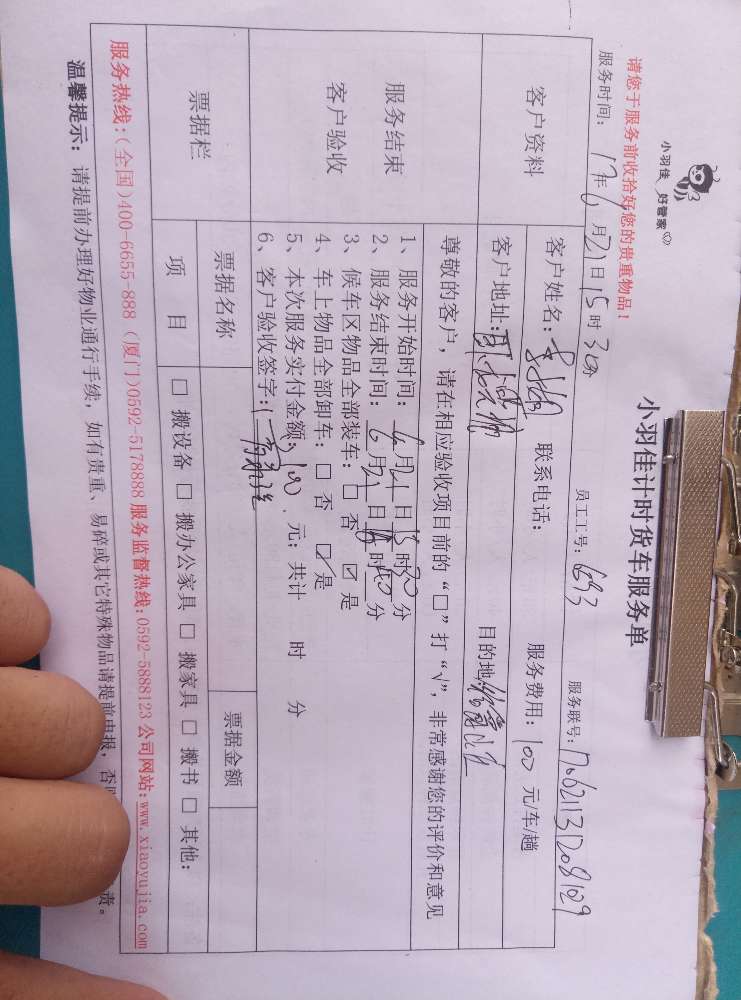 小羽佳 好管家
小羽佳计时货车服务单
请您于服务前收拾好您的贵重物品！
员工工号：693 服务联号：170621131208129
服务时间：17年6月21日15时30分
客户资料
客户姓名： 联系电话： 服务费用：100 元/车/趟
客户地址： 目的地：
服务结束
客户验收
尊敬的客户，请在相应验收项目前的“□”打“√”，非常感谢您的评价和意见
1、服务开始时间：6月21日15时30分
2、服务结束时间：6月21日 时40分
3、候车区物品全部装车：□ 否 ☑ 是
4、车上物品全部卸车：□ 否 ☑ 是
5、本次服务实付金额：100 元；共计 时 分
6、客户验收签字：
票据栏
票据名称 票据金额
项 目 □ 搬设备 □ 搬办公家具 □ 搬家具 □ 搬书 □ 其他：
服务热线：（全国）400-6655-888（厦门）0592-5178888 服务监督热线：0592-5888123 公司网站：www.xiaoyujia.com
温馨提示：请提前办理好物业通行手续，如有贵重、易碎或其它特殊物品请提前申报，否 责。